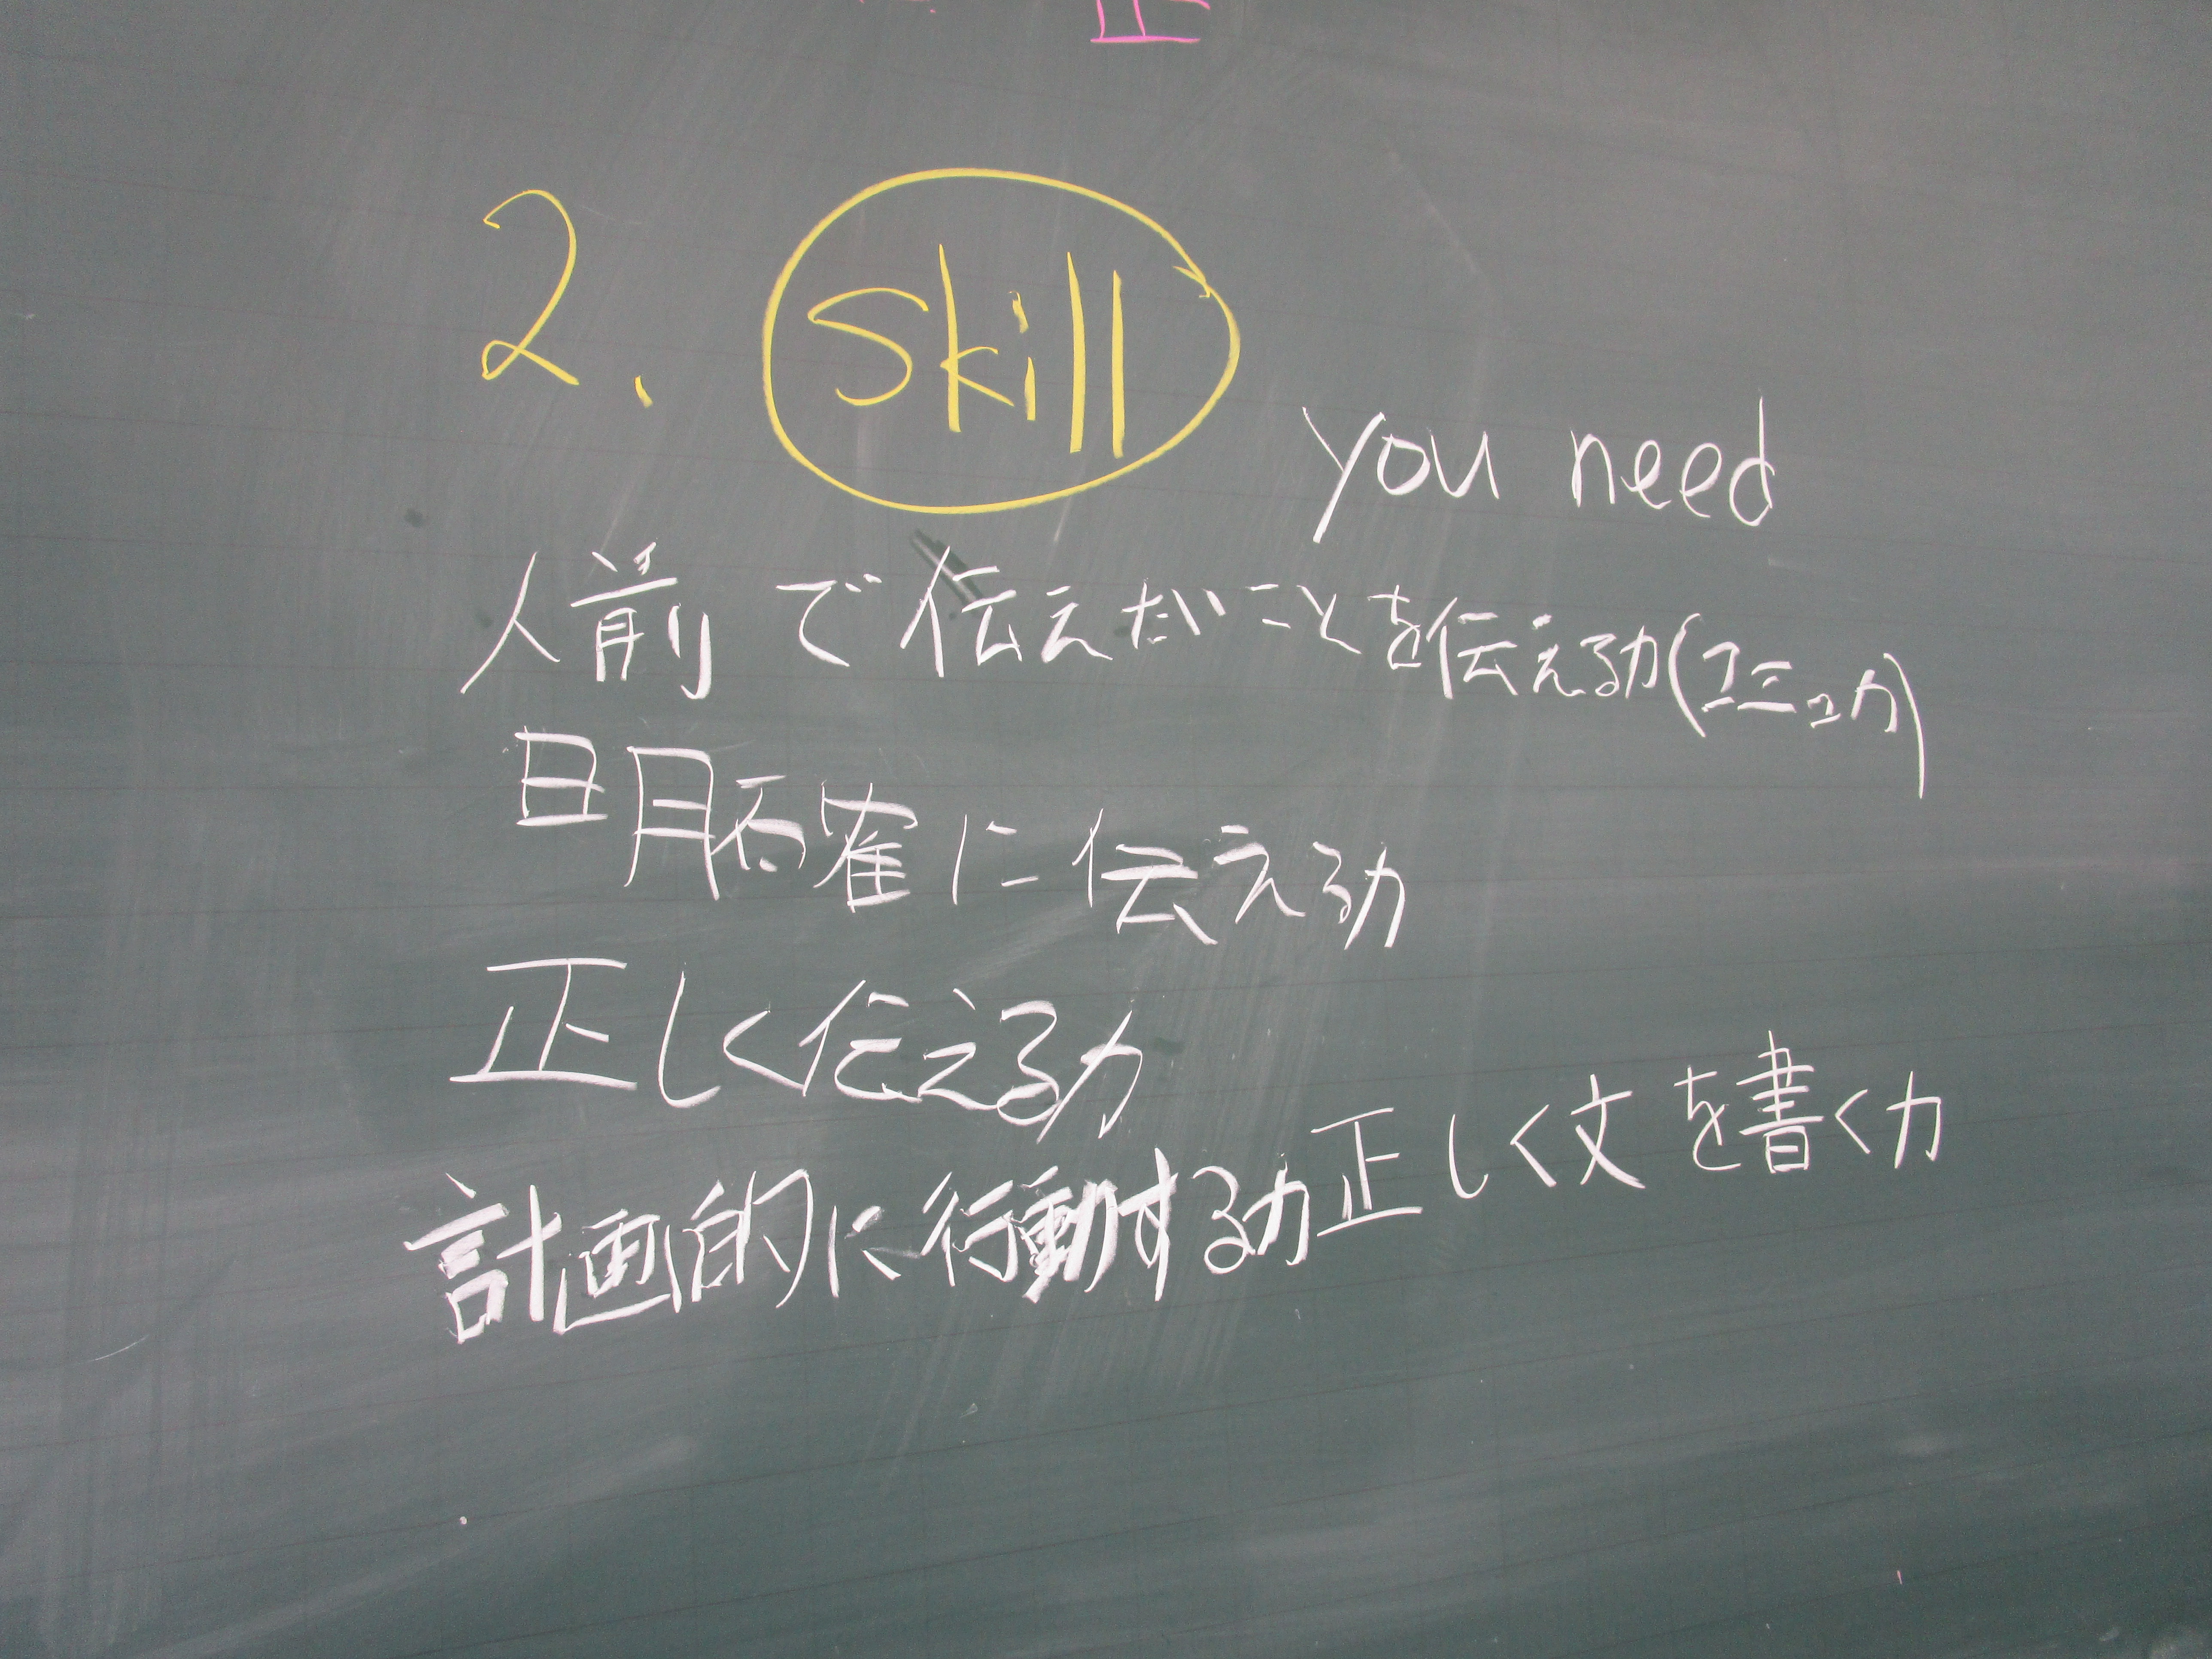 2. Skill
you need
人前で伝えたいことを伝える力(コミュ力)
明確に伝える力
正しく伝える力
計画的に行動する力
正しく文を書く力